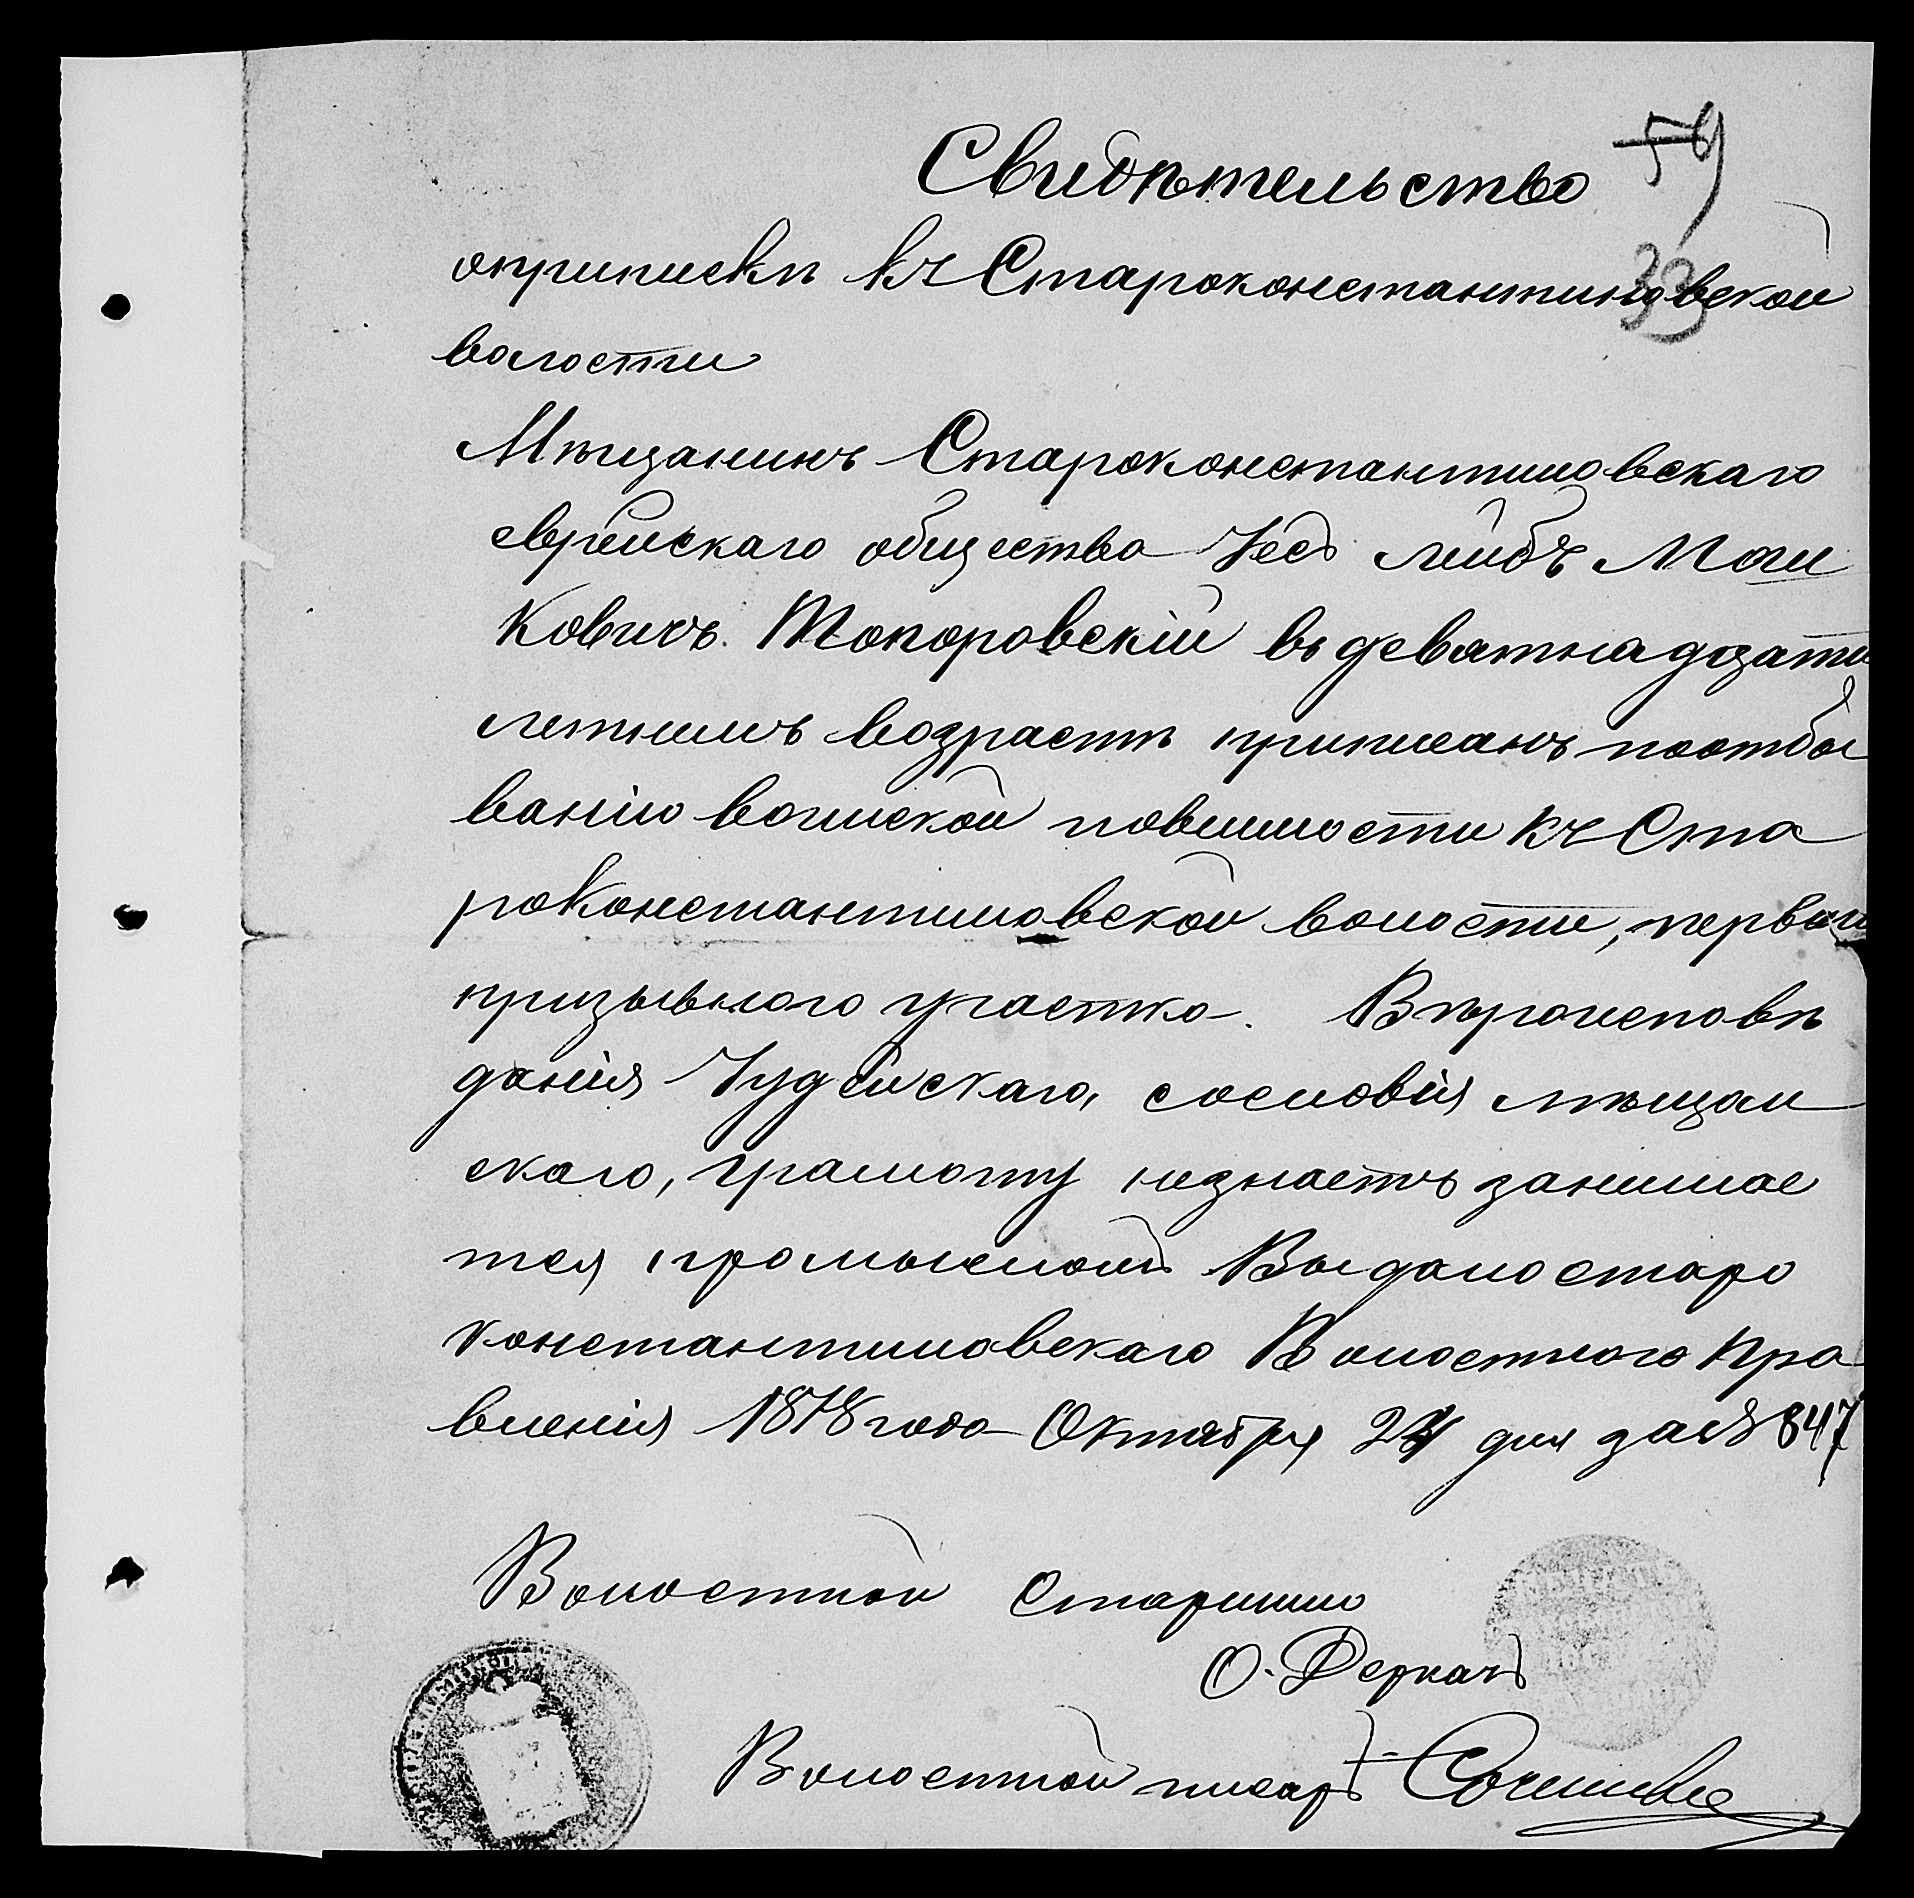 Свидѣтельство
59
33
оприпискѣ къ Староконстантиновской
волости
Мѣщанинъ Староконстантиновскаго
еврейскаго общества Лейбъ Мош
ковичъ Топоровскій въ девятнадцати
летнемъ возрастѣ приписанъ поотбы
ванію воинской повинности къ Ста
роконстантиновской волости, первый
призывного участка. Вѣроисповѣ
данія Іудейскаго, сословія мѣщан
скаго, грамоту незнаетъ занимае
тся промысломъ Выдано старо
константиновскаго Волостного Пра
вленія 1878 года Октября 24 дня за № 847
Волостной Старшина
О. Деркачъ
Волостной писарь